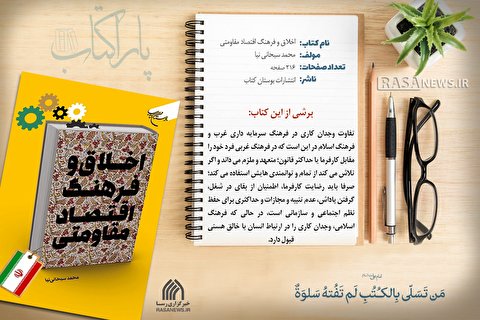 پاراکتاب
RASANEWS.IR
نام کتاب: اخلاق و فرهنگ اقتصاد مقاومتی
مولف: محمد سبحانی نیا
تعداد صفحات: ۲۱۶ صفحه
ناشر: انتشارات بوستان کتاب
برشی از این کتاب:
تفاوت وجدان کاری در فرهنگ سرمایه داری غرب و
فرهنگ اسلام در این است که در فرهنگ غربی فرد خود را
مقابل کارفرما یا حداکثر قانون؛ متعهد و ملزم می داند و اگر
تلاش می کند از تمام و توانمندی هایش استفاده می کند؛
صرفا باید رضایت کارفرما، اطمنیان از بقای در شغل،
گرفتن پاداش، عدم تنبیه و مجازات و حداکثری برای حفظ
نظم اجتماعی و سازمانی است، در حالی که فرهنگ
اسلامی، وجدان کاری را در ارتباط انسان با خالق هستی
قبول دارد.
اخلاق و
فرهنگ
اقتصاد
مقاومتی
محمد سبحانی نیا
خبرگزاری رسا
RASANEWS.IR
مَن تَسَلّی بِالکُتُبِ لَم تَفُتهُ سَلوَةٌ